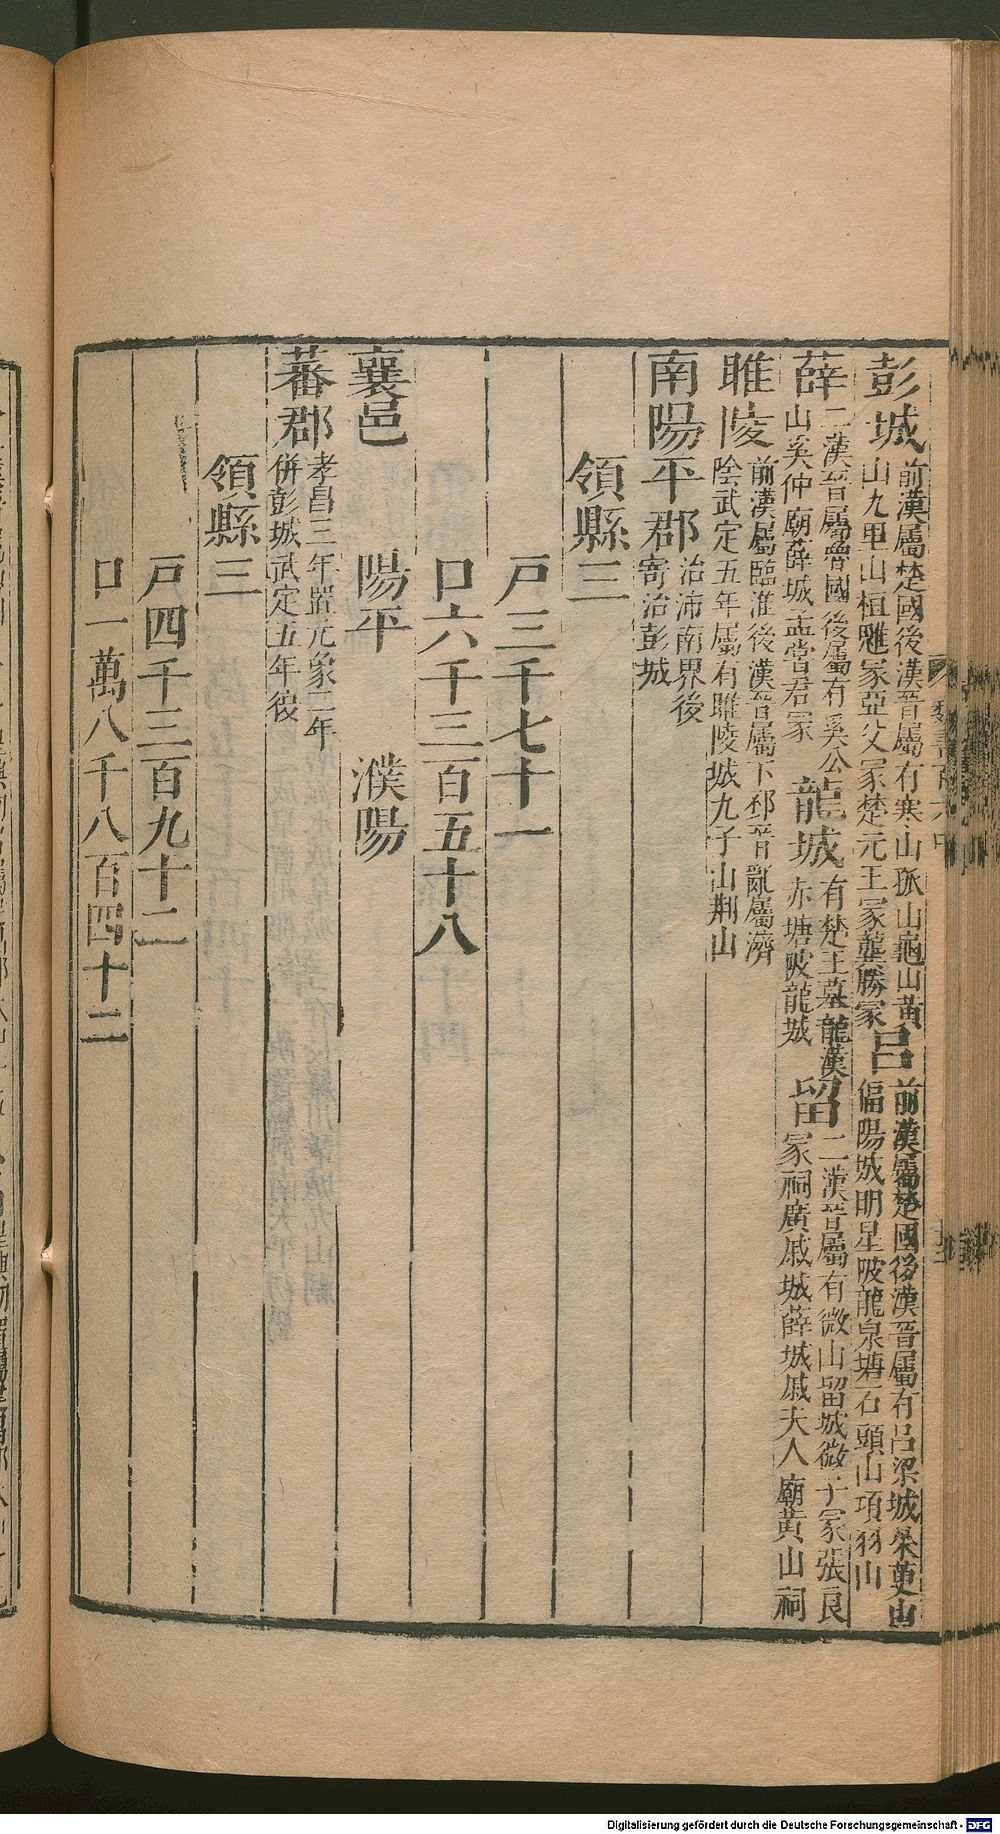 彭城 前漢屬楚國後漢晉屬有寒山孤山龜山黃山九里山桓魋冢亞父冢楚元王冢龔勝冢 呂 前漢屬楚國後漢晉屬有呂梁城茱萸山偪陽城明星陂龍泉塘石頭山項羽山
薛 二漢晉屬魯國後屬有奚公山奚仲廟薛城孟嘗君冢 龍城 有楚王墓龍漢赤塘陂龍城 留 二漢晉屬有微山留城微子冢張良冢祠廣戚城薛城戚夫人廟黃山祠
睢陵 前漢屬臨淮後漢晉屬下邳晉亂屬濟陰武定五年屬有睢陵城九子山荆山
南陽平郡 治沛南界後寄治彭城
領縣三
戶三千七十一
口六千三百五十八
襄邑 陽平 濮陽
蕃郡 孝昌三年置元象二年併彭城武定五年復
領縣三
戶四千三百九十二
口一萬八千八百四十二
Digitalisierung gefördert durch die Deutsche Forschungsgemeinschaft - DFG